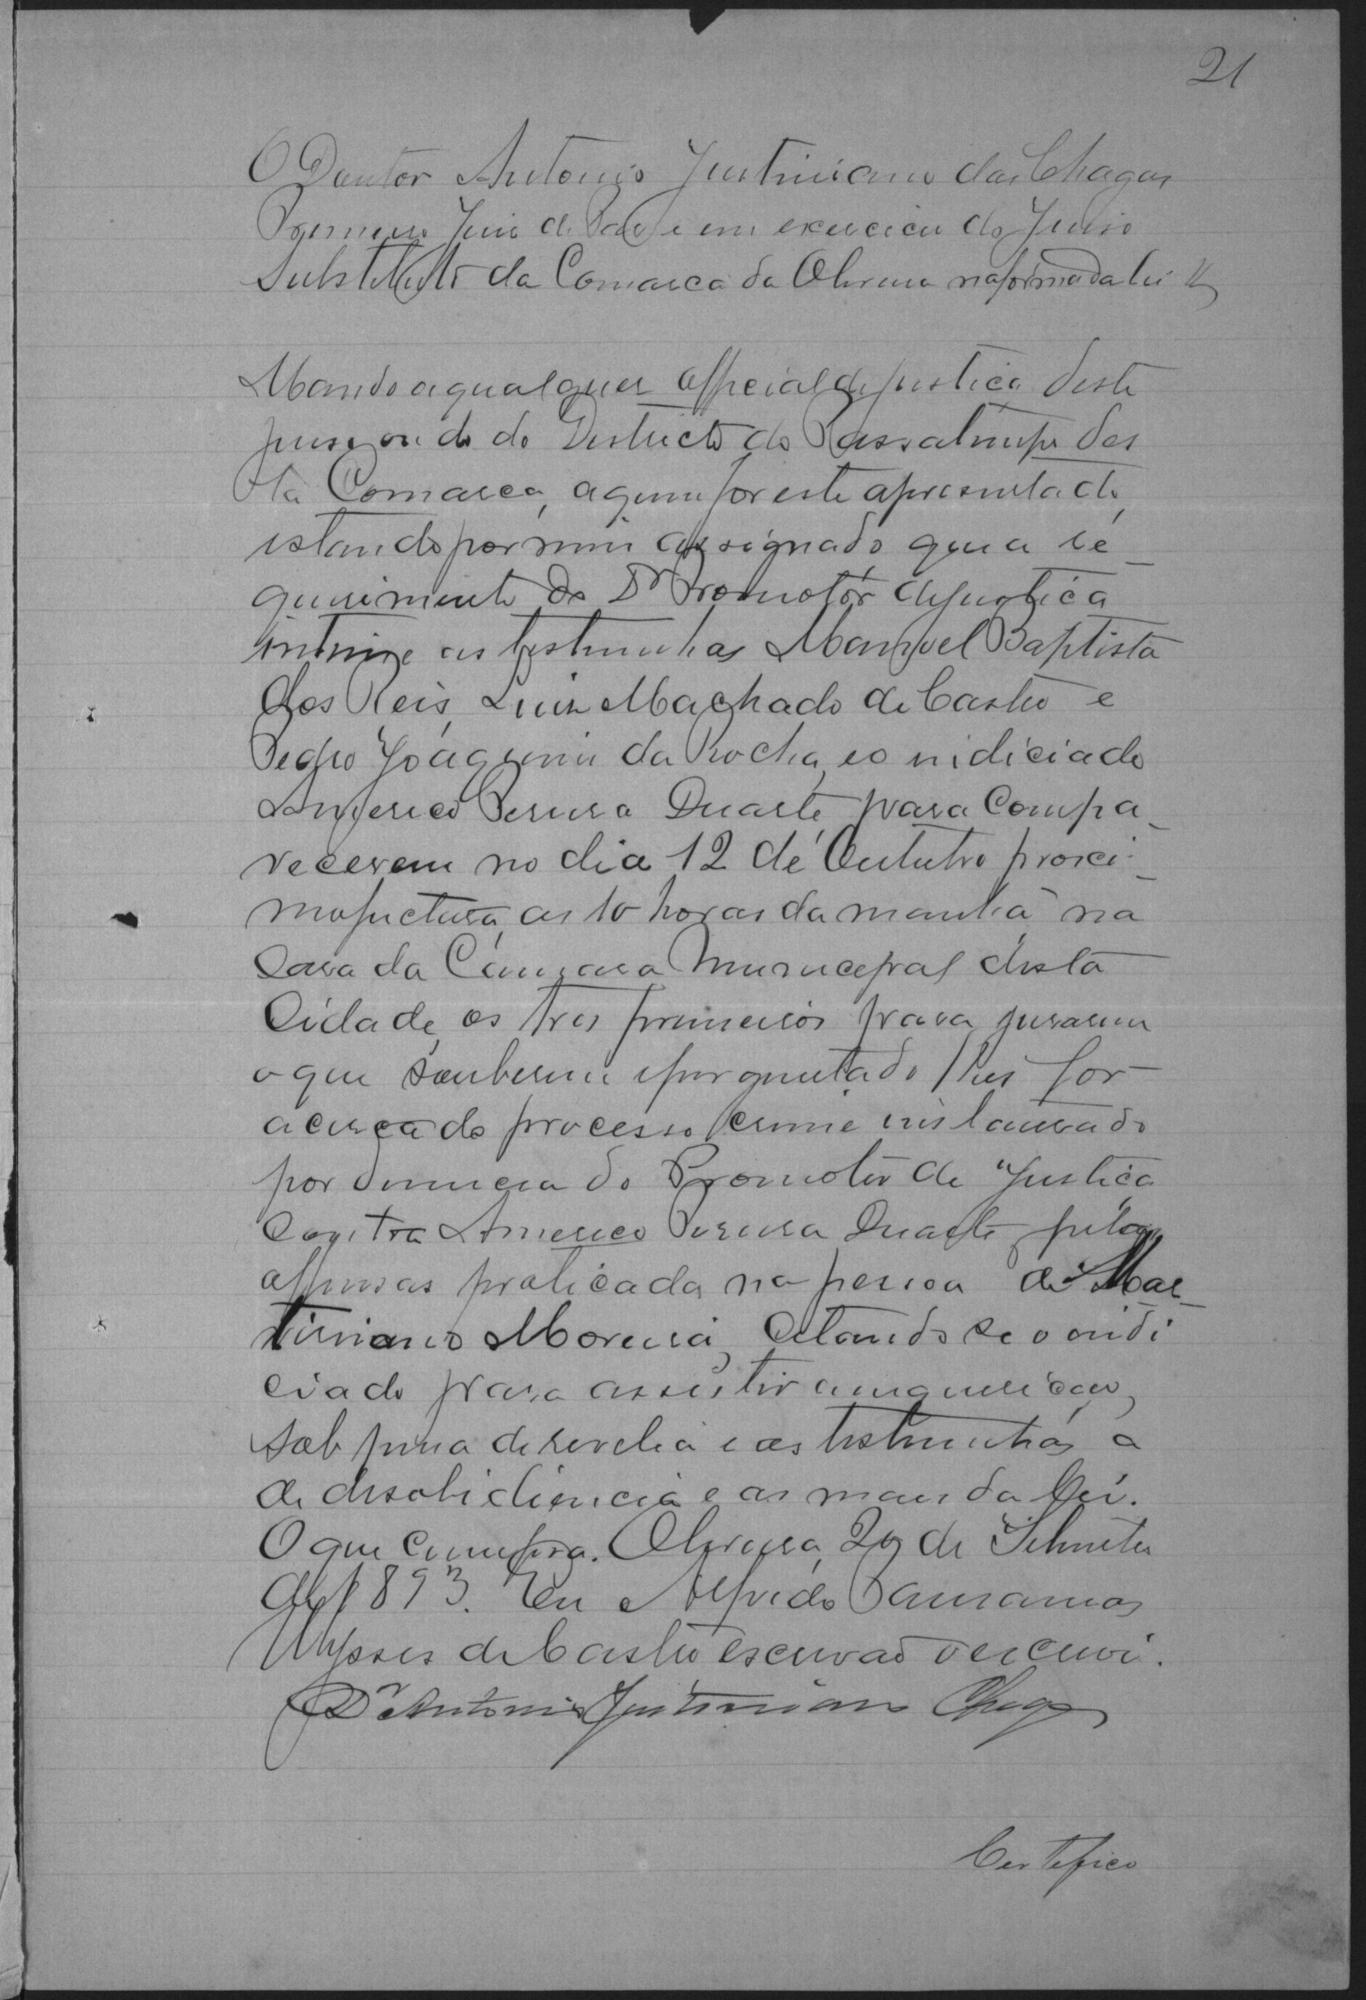 21
O Doutor Antonio Justiniano das Chagas
Primeiro Juiz de Paz e em exercicio do Juiso
Substituto da Comarca da Oliveira na forma da lei
Mando a qualquer official de justiça deste
juiso ou do do Districto do Passatempo des
ta Comarca, a quem for este apresentado,
estando por mim assignado que a re-
querimento do Dr Promotor de justiça
intime as testemunhas Manoel Baptista
dos Reis, Luiz Machado de Castro e
Pedro Joaquim da Rocha, e o indiciado
Americo Pereira Duarte para compa-
recerem no dia 12 de Outubro proxi-
mo futuro, as 10 horas da manhã na
casa da Camara Municipal desta
Cidade, os tres primeiros para jurarem
o que souberem e perguntado lhes for
acerca do processo crime instaurado
por denuncia do Promotor de Justiça
contra Americo Pereira Duarte pelas
offensas praticada na pessoa de Mar-
tiniano Moreira, citando se o indi
ciado para assistir a inquirição,
sob pena de revelia e as testemunhas a
de desobidiencia e as mais da lei.
O que cumpra. Oliveira, 29 de Setembro
de 1893. Eu Alfredo
Ulysses de Castro escrivão o escrevi.
Dr Antonio Justiniano Chagas
Certifico